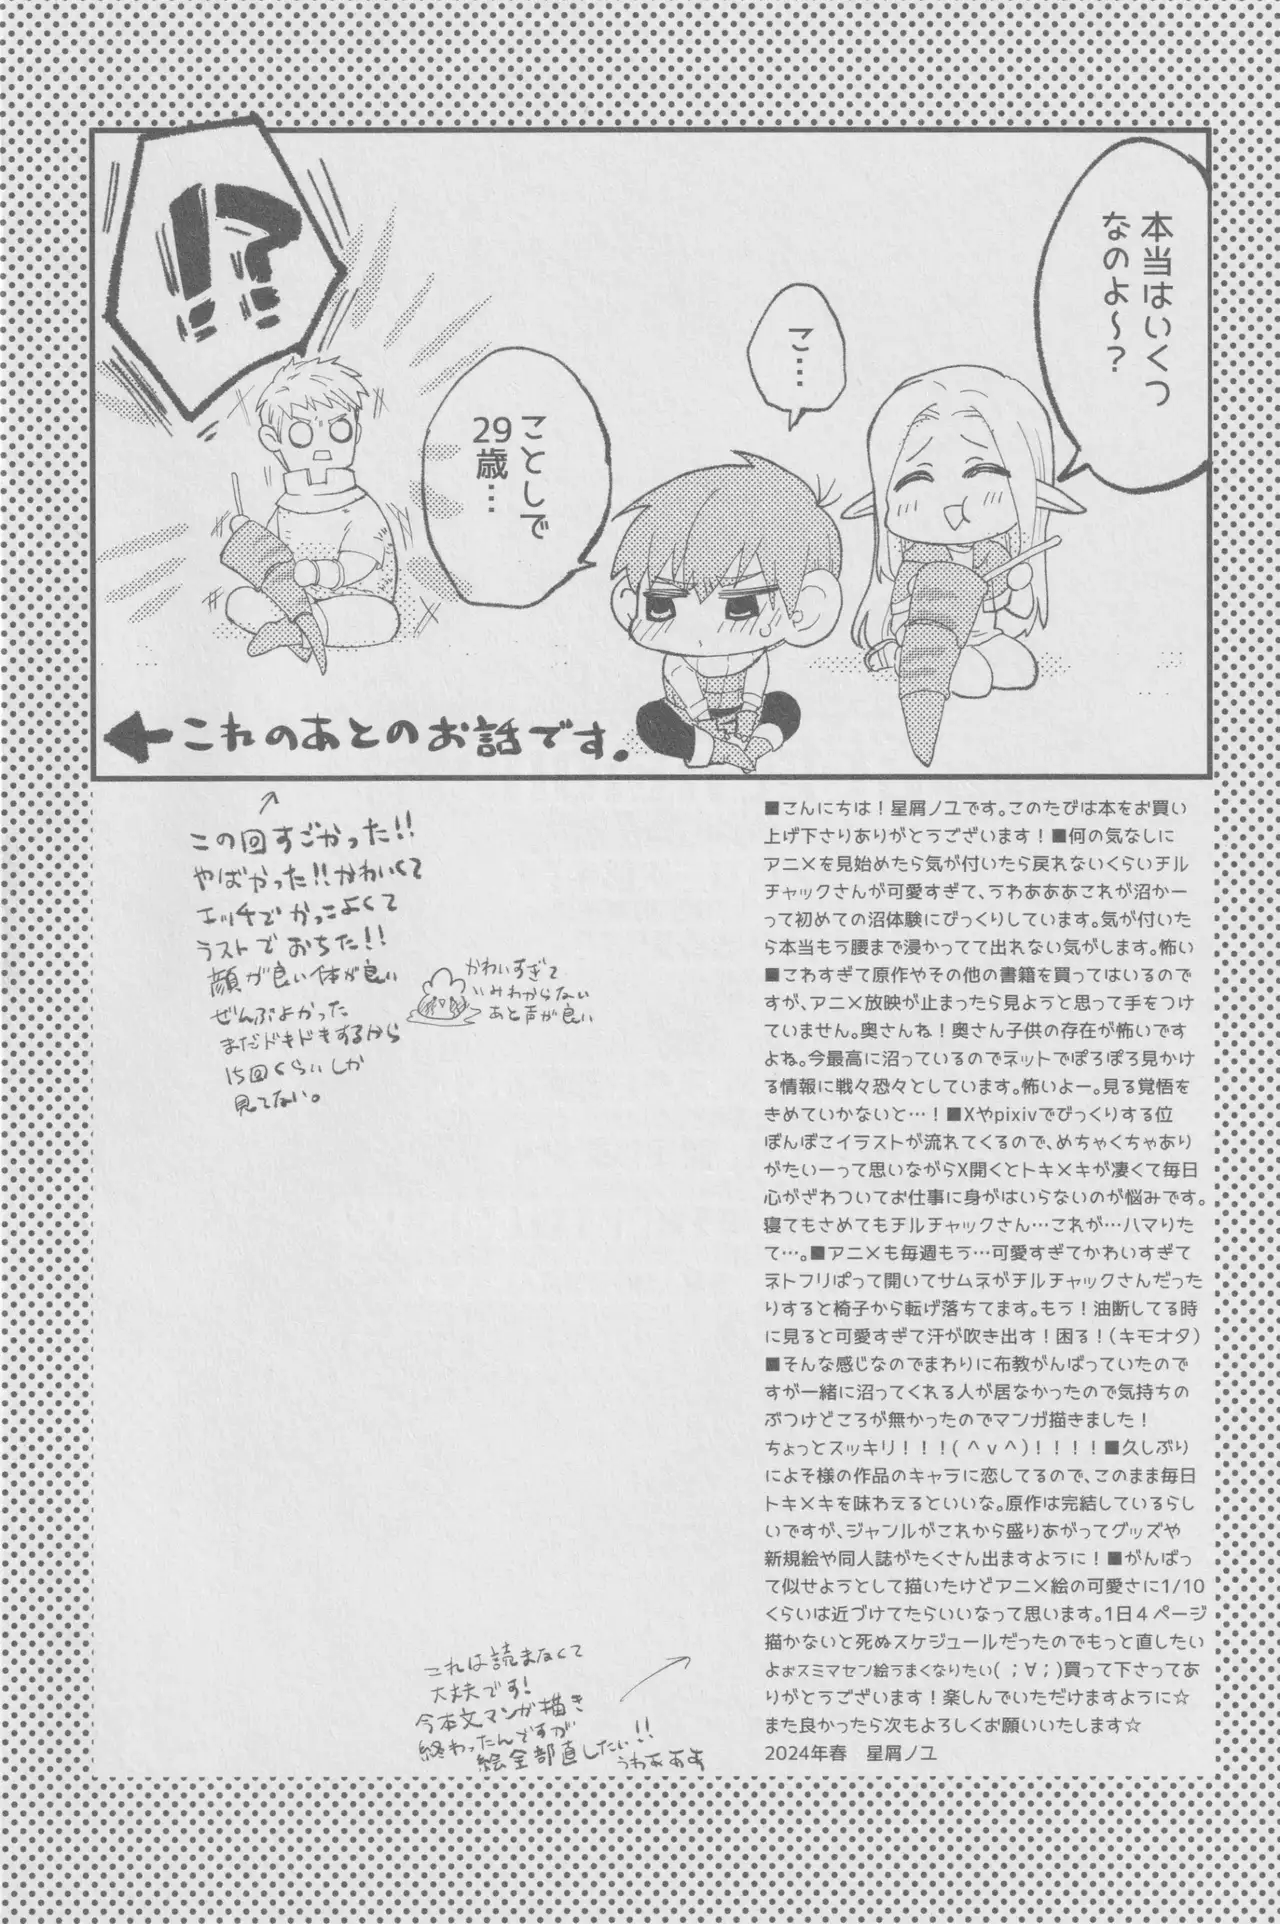 本当はいくつ
なのよ〜?
こ…
ことしで
29歳…
!?
←これのあとのお話です.
この回すごかった!!
やばかった!!かわいくて
エッチでかっこよくて
ラストでおちた!!
顔が良い体が良い
ぜんぶよかった
まだドキドキするから
15回くらいしか
見てない。
かわいすぎて
いみわからない
あと声が良い
■こんにちは!星屑ノユです。このたびは本をお買い
上げ下さりありがとうございます!■何の気なしに
アニ×を見始めたら気が付いたら戻れないくらいチル
チャックさんが可愛すぎて、うわあああこれが沼かー
って初めての沼体験にびっくりしています。気が付いた
ら本当もう腰まで浸かってて出れない気がします。怖い
■こわすぎて原作やその他の書籍を買ってはいるので
すが、アニ×放映が止まったら見ようと思って手をつけ
ていません。奥さんね!奥さん子供の存在が怖いです
よね。今最高に沼っているのでネットでぽろぽろ見かけ
る情報に戦々恐々としています。怖いよー。見る覚悟を
きめていかないと…!■Xやpixivでびっくりする位
ぽんぽこイラストが流れてくるので、めちゃくちゃあり
がたいーって思いながらX開くとトキ×キが凄くて毎日
心がざわついてお仕事に身がはいらないのが悩みです。
寝てもさめてもチルチャックさん…これが…ハマりた
て…。■アニ×も毎週もう…可愛すぎてかわいすぎて
ネトフリぱって開いてサムネがチルチャックさんだった
りすると椅子から転げ落ちてます。もう!油断してる時
に見ると可愛すぎて汗が吹き出す!困る!(キモオタ)
■そんな感じなのでまわりに布教がんばっていたので
すが一緒に沼ってくれる人が居なかったので気持ちの
ぶつけどころが無かったのでマンガ描きました!
ちょっとスッキリ!!!(^v^)!!!!■久しぶり
によそ様の作品のキャラに恋してるので、このまま毎日
トキ×キを味わえるといいな。原作は完結しているらし
いですが、ジャンルがこれから盛りあがってグッズや
新規絵や同人誌がたくさん出ますように!■がんばっ
て似せようとして描いたけどアニ×絵の可愛さに1/10
くらいは近づけてたらいいなって思います。1日4ページ
描かないと死ぬスケジュールだったのでもっと直したい
よぉスミマセン絵うまくなりたい(;∀;)買って下さってあ
りがとうございます!楽しんでいただけますように☆
また良かったら次もよろしくお願いいたします☆
2024年春　星屑ノユ
これは読まなくて
大丈夫です!
今本文マンガ描き
終わったんですが
絵全部直したい!!
うわあああ